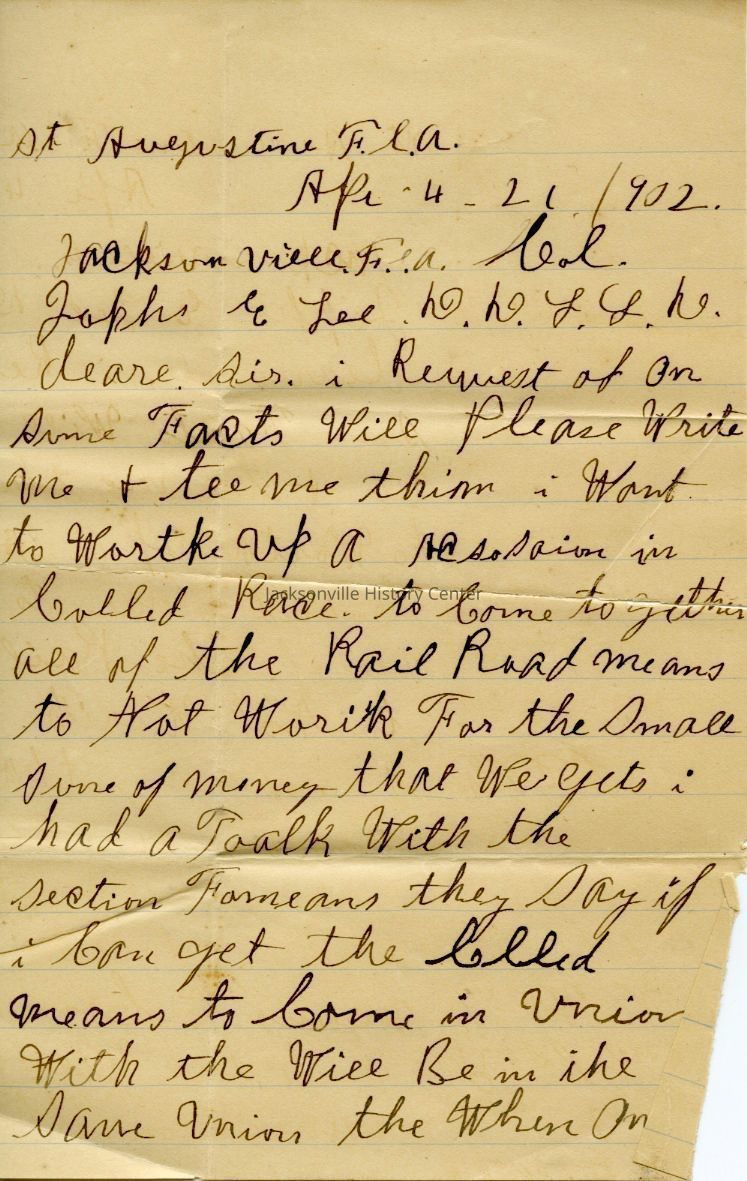 St Augustine F.l.a.
Apr - 4 - 21. 1902.
Jacksonvill. F.l.a. Col.
Jophs E Lee. D. D. L. L. D.
deare. Sir. i Request of on
Some Facts Will Please Write
Me & tell me thim i Want
to Workke Up A in
Colled Race. to Come to gether
Jacksonville History Center
all of the Rail Road means
to Not Work For the Small
Sume of money that We gets i
had a Toalk With the
section Fomeans they Say if
i Can get the Colled
means to Come in Union
With the Will Be in the
Same Union the When On